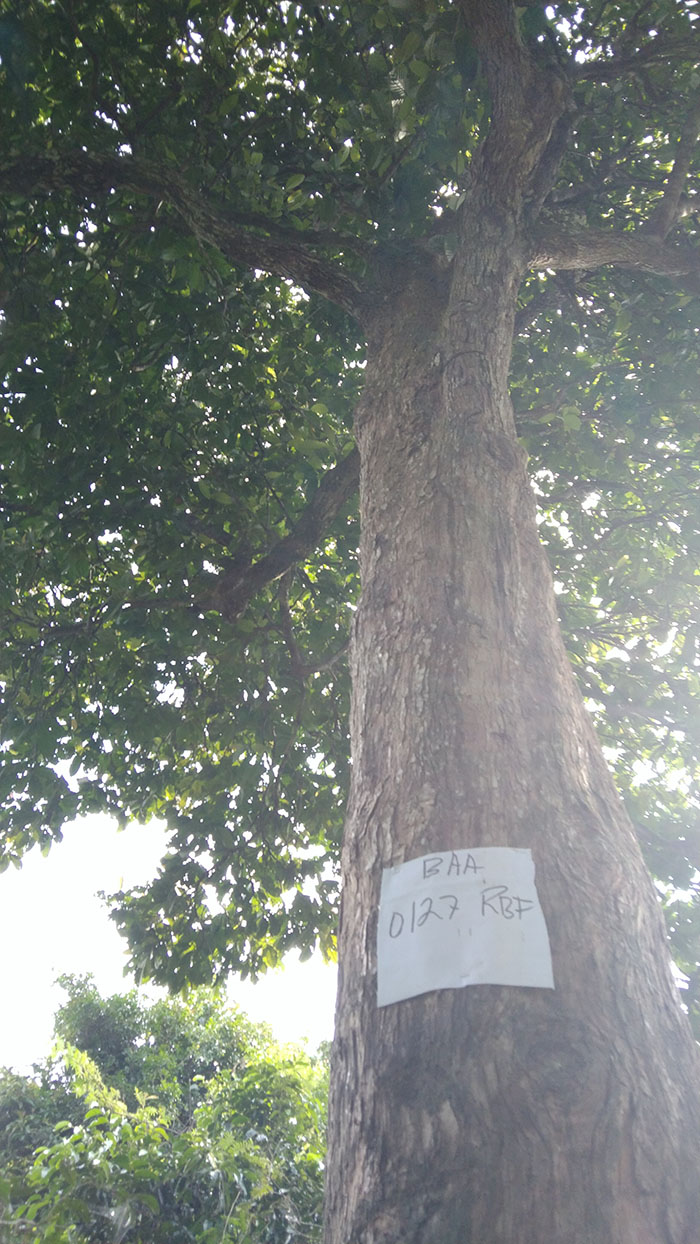 BAA
0127 RBF